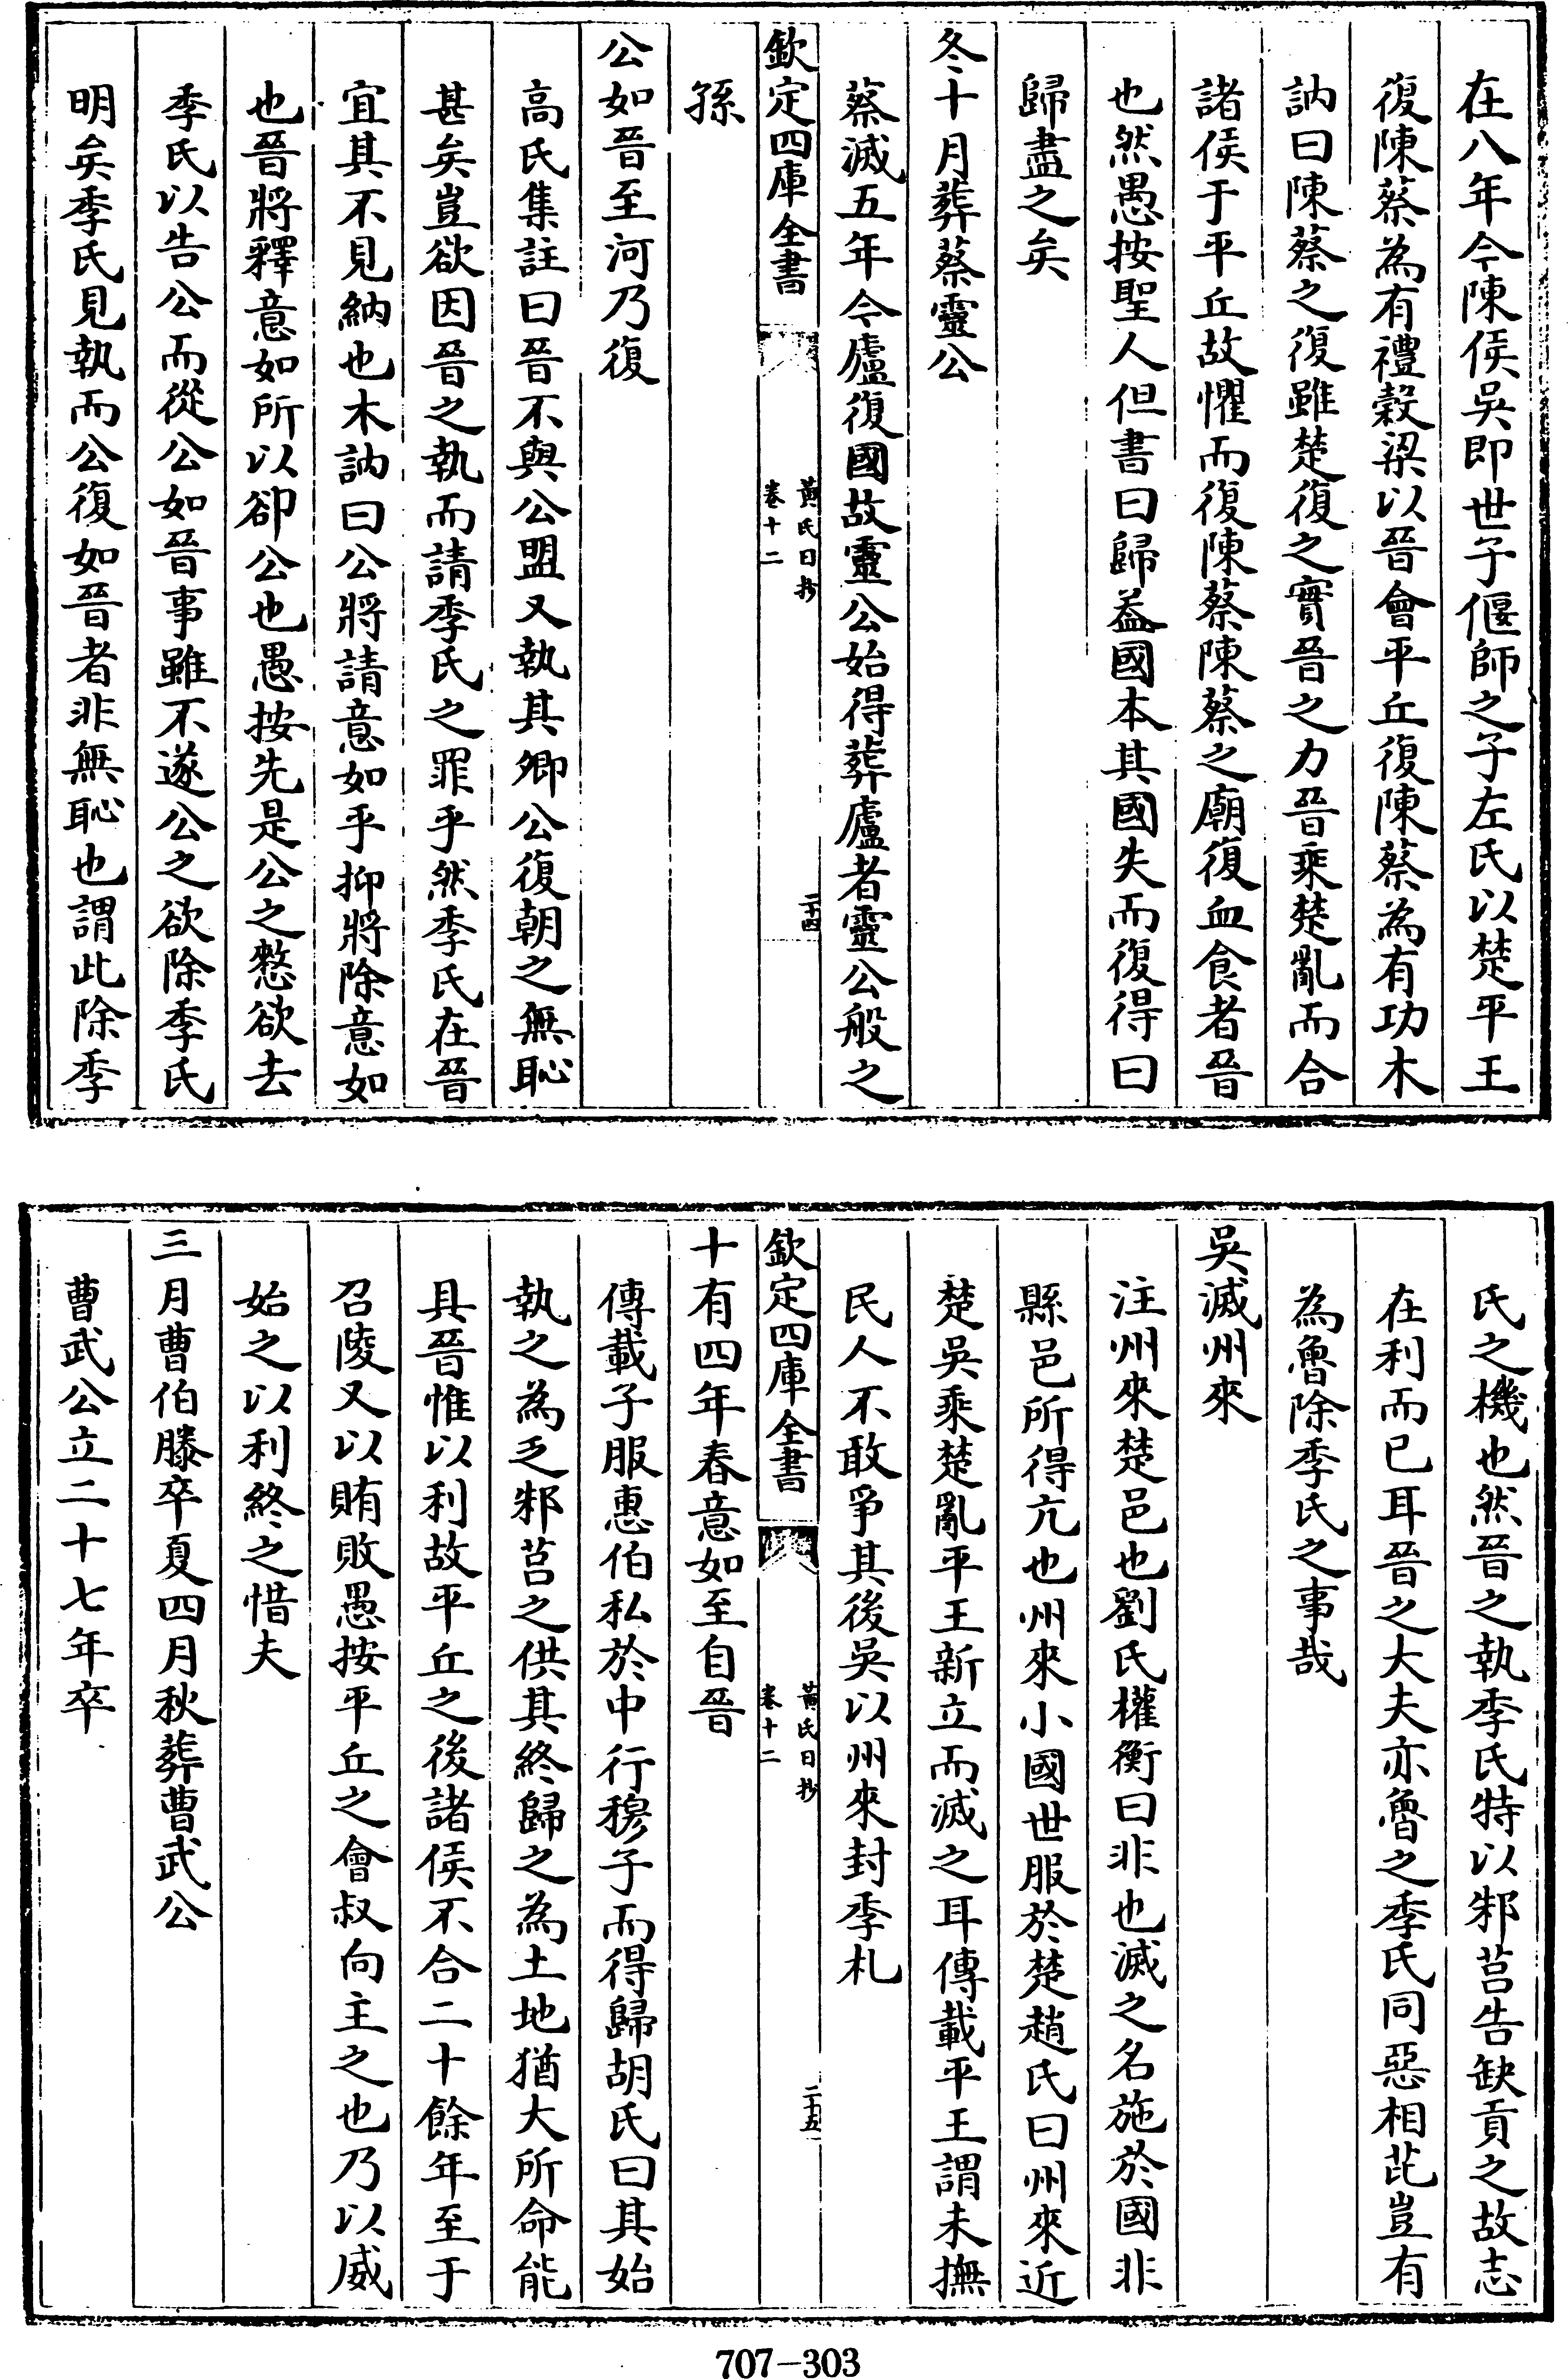 在八年今陳侯吳即世子偃師之子左氏以楚平王
復陳蔡為有禮穀梁以晉會平丘復陳蔡為有功木
訥曰陳蔡之復雖楚復之實晉之力晉乘楚亂而合
諸侯于平丘故懼而復陳蔡陳蔡之廟復血食者晉
也然愚按聖人但書曰歸葢國本其國失而復得曰
歸盡之矣
冬十月葬蔡靈公
蔡滅五年今廬復國故靈公始得葬廬者靈公般之
欽定四庫全書
黃氏日抄
卷十二
二十四
孫
公如晉至河乃復
高氏集註曰晉不與公盟又執其卿公復朝之無恥
甚矣豈欲因晉之執而請季氏之罪乎然季氏在晉
宜其不見納也木訥曰公將請意如乎抑將除意如
也晉將釋意如所以卻公也愚按先是公之憖欲去
季氏以告公而從公如晉事雖不遂公之欲除季氏
明矣季氏見執而公復如晉者非無恥也謂此除季
氏之機也然晉之執季氏特以邾莒告缺貢之故志
在利而已耳晉之大夫亦魯之季氏同惡相芘豈有
為魯除季氏之事哉
吳滅州來
注州來楚邑也劉氏權衡曰非也滅之名施於國非
縣邑所得亢也州來小國世服於楚趙氏曰州來近
楚吳乘楚亂平王新立而滅之耳傳載平王謂未撫
民人不敢爭其後吳以州來封季札
欽定四庫全書
黃氏日抄
卷十二
二十五
十有四年春意如至自晉
傳載子服惠伯私於中行穆子而得歸胡氏曰其始
執之為乏邾莒之供其終歸之為土地猶大所命能
具晉惟以利故平丘之後諸侯不合二十餘年至于
召陵又以賄敗愚按平丘之會叔向主之也乃以威
始之以利終之惜夫
三月曹伯滕卒夏四月秋葬曹武公
曹武公立二十七年卒
707-303